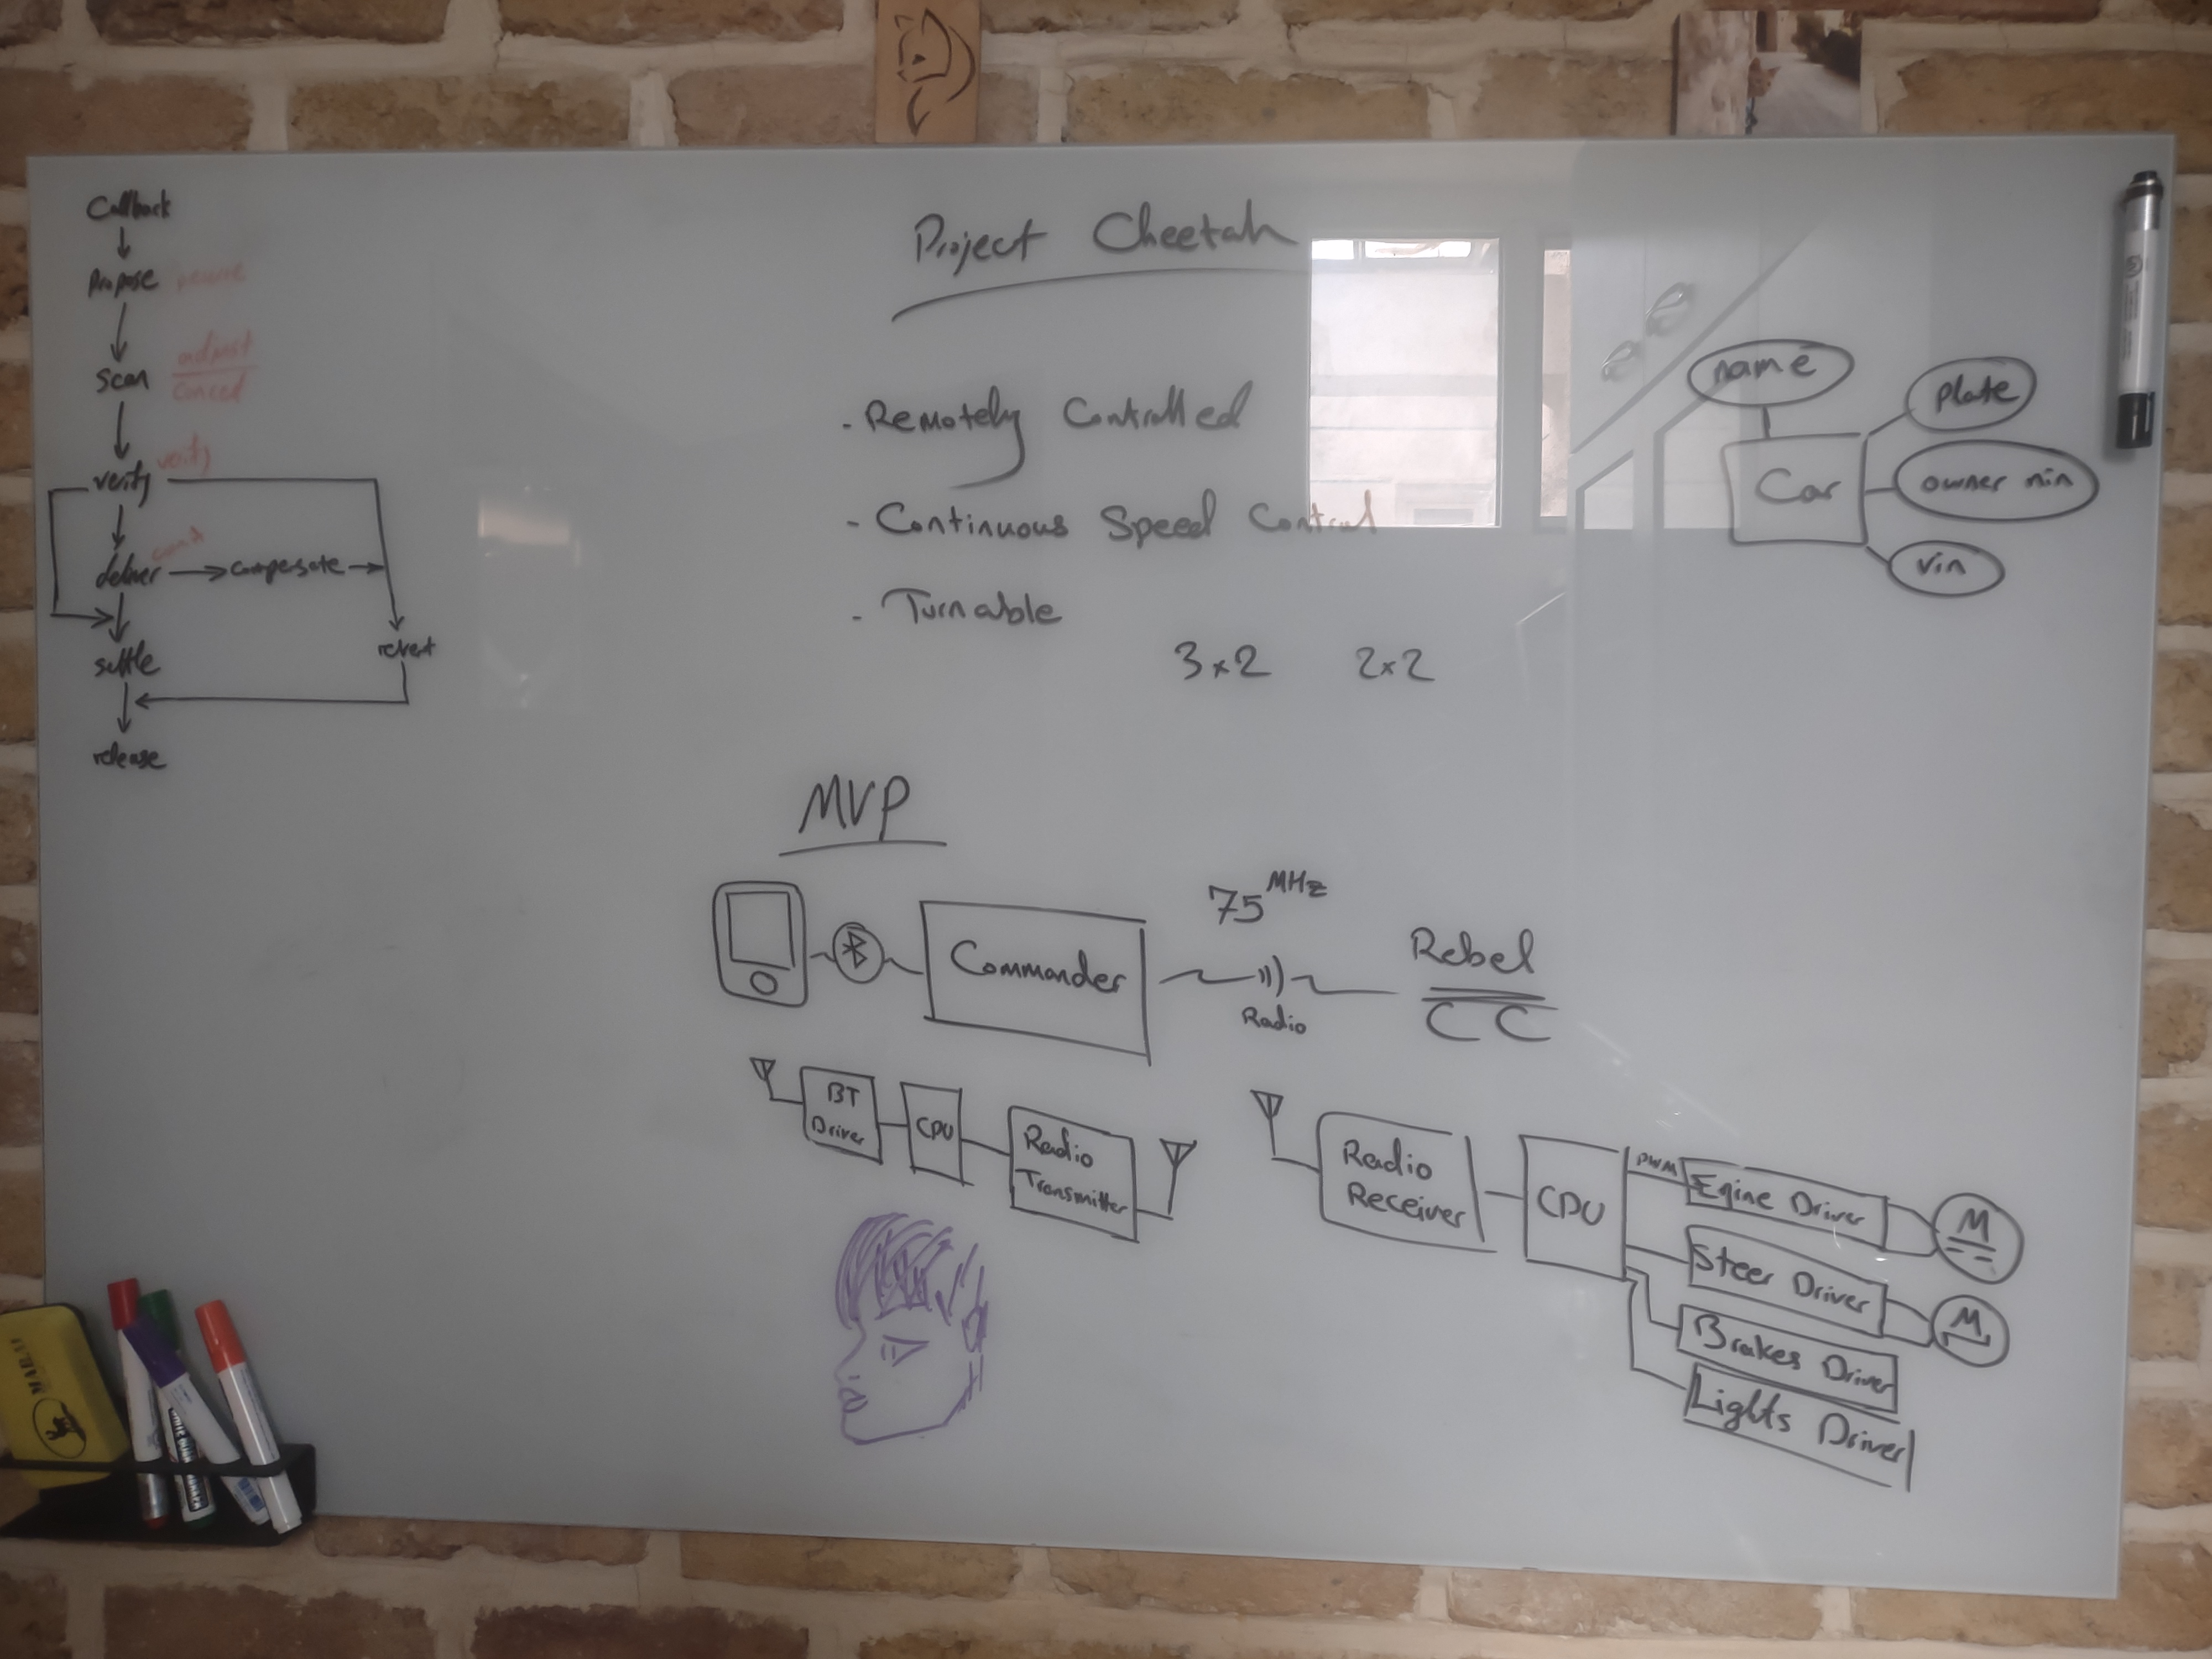 Callback
Propose
scan
adjust
cancel
verify verify
deliver
compensate
settle
revert
release
Project Cheetah
- Remotely Controlled
- Continuous Speed Control
- Turnable
3x2 2x2
name
plate
Car
owner nin
vin
MVP
Commander
75 MHz
Radio
Rebel
BT
Driver
CPU
Radio
Transmitter
Radio
Receiver
CPU
PWM
Egine Driver
M
Steer Driver
M
Brakes Driver
Lights Driver